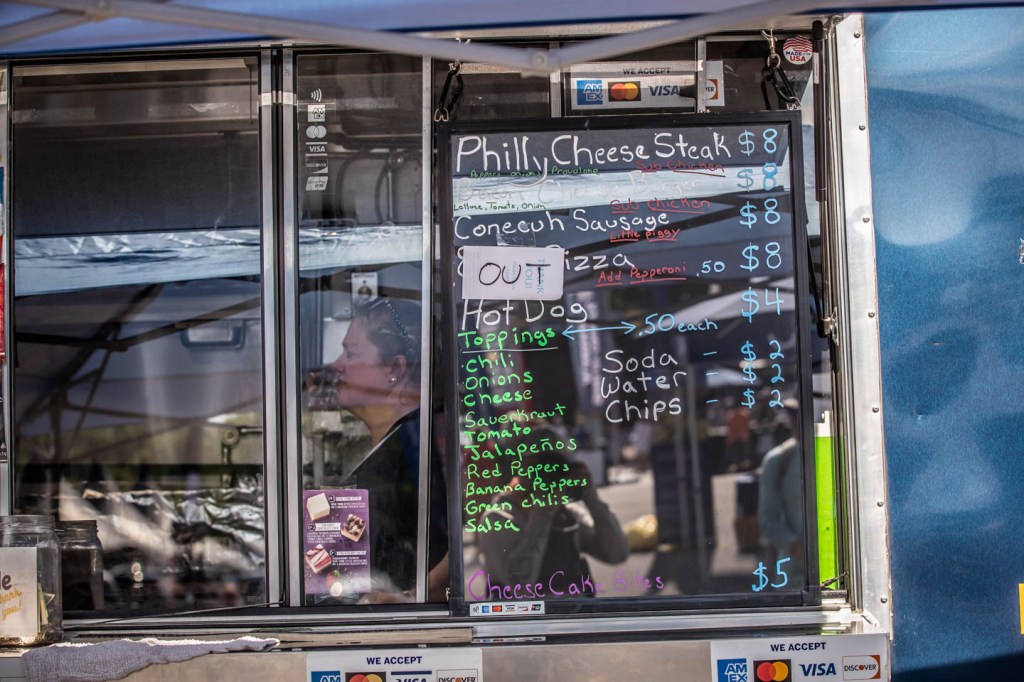 WE ACCEPT
AM EX VISA VER
MADE IN USA
AM EX
VISA
DISCOVER
Philly Cheese Steak $8
Peppers onions Provolone
Sub Chicken
Burger $8
Lettuce, Tomato, Onion
Sub Chicken
Conecuh Sausage $8
Little Piggy
izza $8
OUT
Add Pepperoni .50
Hot Dog $4
Toppings .50 each
Chili
Onions
Cheese
Sauerkraut
Tomato
Jalapeños
Red Peppers
Banana Peppers
Green chilis
Salsa
Soda - $2
Water - $2
Chips - $2
CheeseCake Bites $5
thank you!
WE ACCEPT
AM EX VISA DISCOVER
WE ACCEPT
AM EX VISA DISCOVER